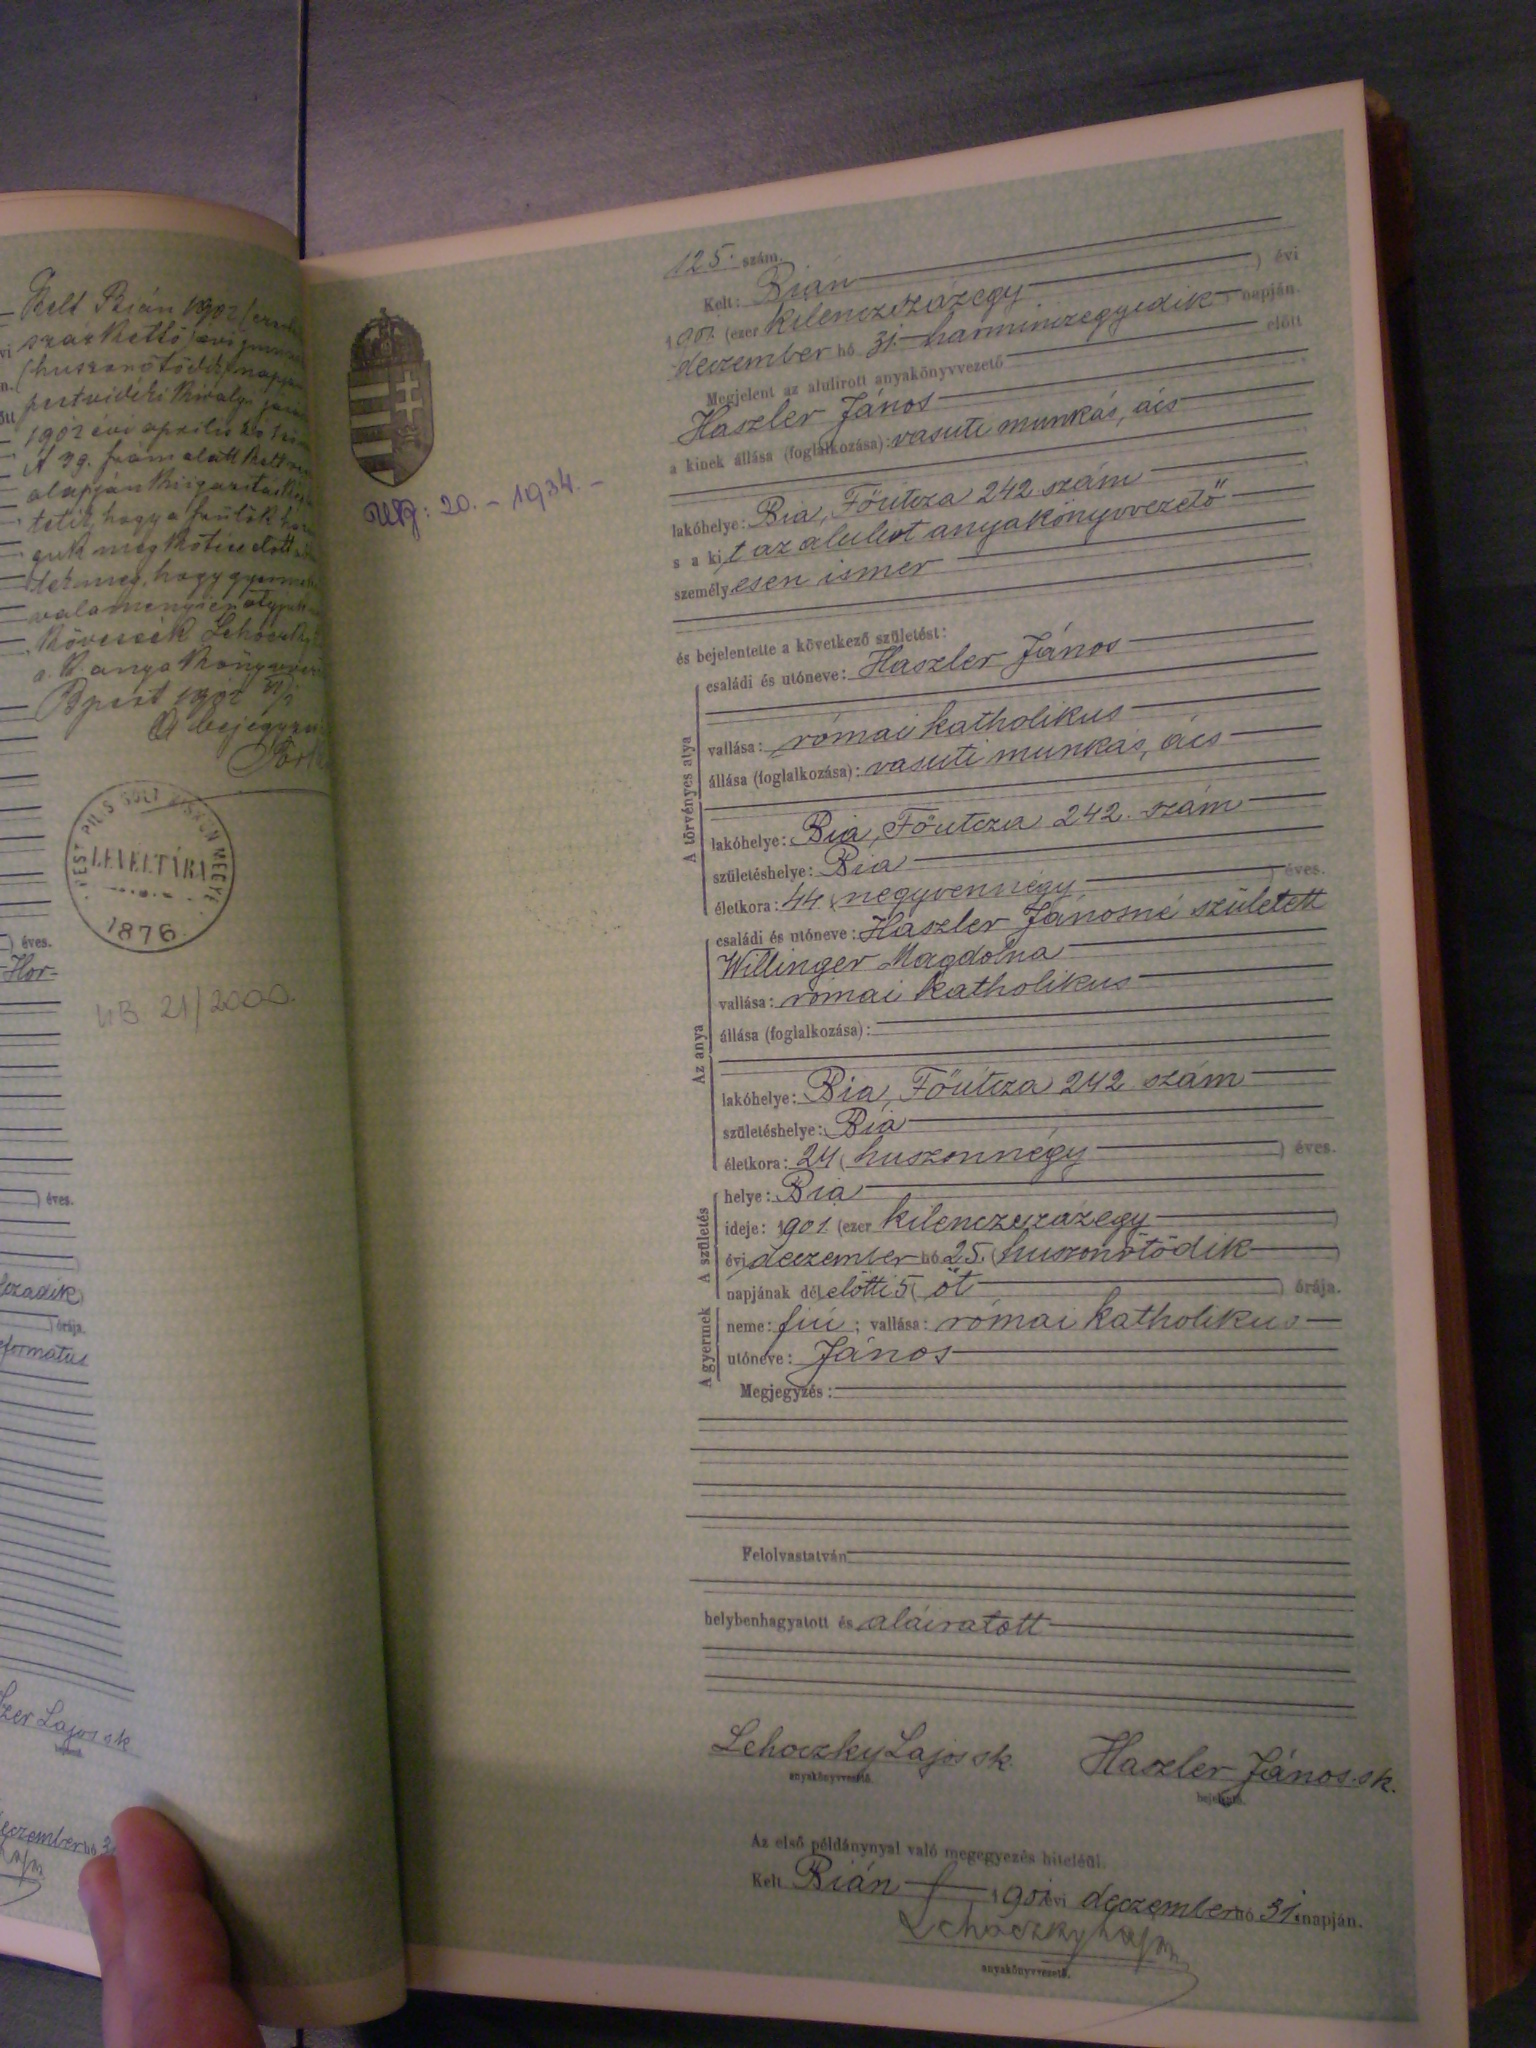 Kelt Bián 1902
száz kettő
(huszonötödik) napján
pestvidéki Kir
1902 évi április
A 39. szám alatt kelt
alapján
hogy a szülők
előtt
meg, hogy gyerme
Lehoczky
a. k. anyakönyvve
Bpest 1902
A bejegyzé
PEST PILIS SOLT KISKUN MEGYE
LEVELTÁRA
1876
) éves.
Hor-
21/2000.
) éves.
órája.
eformatus
Lajos sk
eczember hó
20. - 1934. -
125. szám.
Kelt: Bián
1901. (ezer kilenczszázegy ) évi
deczember hó 31. harminczegyedik napján.
Megjelent az alulirott anyakönyvvezető előtt
Haszler János
a kinek állása (foglalkozása): vasuti munkás, ács
lakóhelye: Bia, Főutcza 242 szám
s a kit az alulirot anyakönyvvezető
személyesen ismer
és bejelentette a következő születést:
A törvényes atya
családi és utóneve: Haszler János
vallása: római katholikus
állása (foglalkozása): vasuti munkás, ács
lakóhelye: Bia, Főutcza 242. szám
születéshelye: Bia
életkora: 44 (negyvennégy ) éves.
Az anya
családi és utóneve: Haszler Jánosné született
Willinger Magdolna
vallása: római katholikus
állása (foglalkozása):
lakóhelye: Bia, Főutcza 242 szám
születéshelye: Bia
életkora: 24 (huszonnégy ) éves.
A születés
helye: Bia
ideje: 1901. (ezer kilenczszázegy )
évi deczember hó 25. (huszonötödik )
napjának délelőtti 5 ( öt ) órája.
A gyermek
neme: fiú ; vallása: római katholikus
utóneve: János
Megjegyzés:
Felolvastatván
helybenhagyatott és aláiratott
Lehoczky Lajos sk Haszler János sk.
anyakönyvvezető. bejelentő.
Az első példánynyal való megegyezés hiteléül.
Kelt Bián 1901 évi deczember hó 31. napján.
Lehoczky Lajos
anyakönyvvezető.